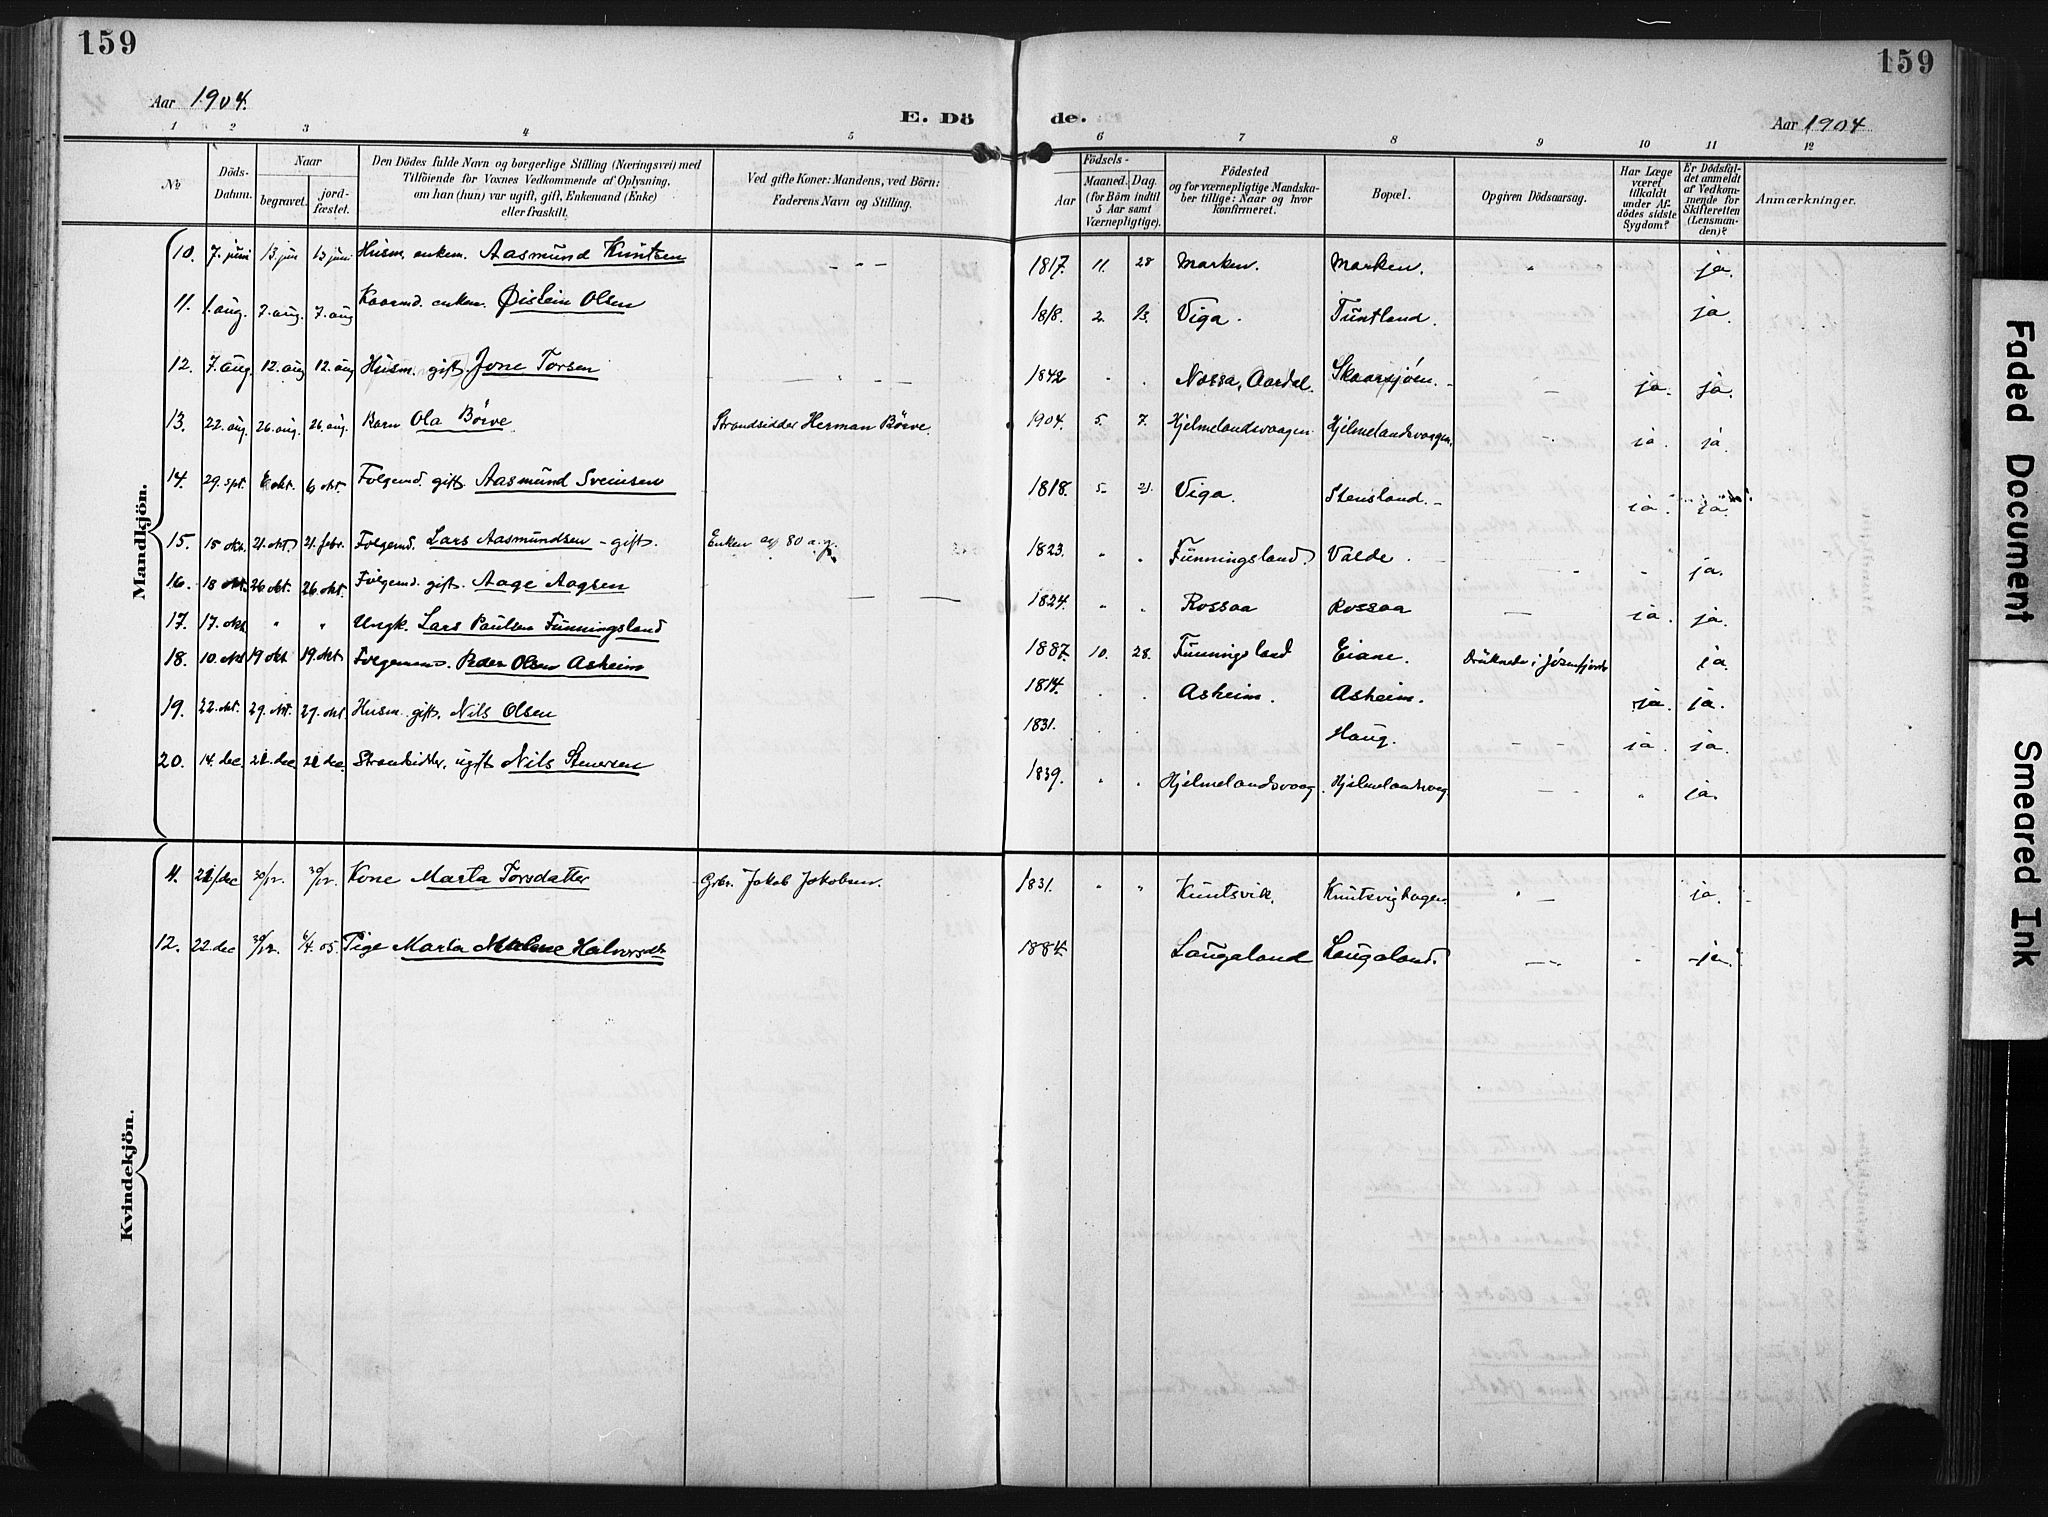 159
159
Aar 1904.
E. Döde.
Aar 1904
1 2 3 4 5 6 7 8 9 10 11 12
No
Döds-Datum.
Naar
begravet.
jord-fæstet.
Den Dödes fulde Navn og borgerlige Stilling (Næringsvei) med
Tilföiende for Voxnes Vedkommende af Oplysning,
om han (hun) var ugift, gift, Enkemand (Enke)
eller fraskilt.
Ved gifte Koner: Mandens, ved Börn:
Faderens Navn og Stilling.
Födsels-
Aar
Maaned. Dag.
(for Börn indtil
5 Aar samt
Værnepligtige).
Födested
og for værnepligtige Mandska-
ber tillige: Naar og hvor
konfirmeret.
Bopæl.
Opgiven Dödsaarsag.
Har Læge
været
tilkaldt
under Af-
dödes sidste
Sygdom?
Er Dödsfal-
det anmeldt
af Vedkom-
mende for
Skifteretten
(Lensman-
den)?
Anmærkninger.
Mandkjön.
10. 7. juni 13. jun 13 juni Husm. enkem. Aasmund Knutsen - - - 1817. 11. 28 Marken. Marken. " ja.
11. 1. aug. 7. aug. 7. aug Kaarmd. enkem. Øistein Olsen 1818. 2. Viga. Tuntland. ja
12. 7. aug. 12. aug 12. aug Husm. gift Jone Torsen — - - - 1842 " " Nossa, Aardal. Skaarsjöen. — ja. ja.
13. 22. aug. 26. aug. 26. aug. Barn Ola Börve. Strandsidder Herman Börve. 1904. 5. 7. Hjelmelandsvaagen Hjelmelandsvaagen. — ja. ja.
14. 29. spt. 6 okt. 6 okt. Folgemd. gift. Aasmund Sveinsen 1818. 5. 21. Viga. Stensland. — ja. ja.
15. 15 okt. 21. okt. 21. febr. Folgemd. Lars Aasmundsen - gift. Enken 80 1823. " " Funningsland. Valde. — " ja.
16. 18 okt. 26 okt. 26. okt. Folgemd. gift. Aage Aagsen — — 1824. " " Rossaa Rossaa — ja. ja.
17. 17. okt. " " Ungk. Lars Paulsen Funningsland 1887. 10. 28. Funningsland Eiane. Druknede i Jösenfjorden ja.
18. 10. okt 19 okt 19. okt Folgemd. Peder Olsen Asheim 1814. " " Asheim. Asheim. ja. ja.
19. 22. okt. 29. okt. 29. okt. Husm. gift. Nils Olsen 1831. Haug. - - ja. ja.
20. 14. dec. 21. dec. 21 dec. Strandsidder, ugift Nils Stenersen 1839. " " Hjelmelandsvaag. Hjelmelandsvaag. — " ja.
Kvindekjön.
11. 21/dec 30/12. 30/12. Kone Marta Torsdatter Grbr. Jakob Jakobsen. 1831. " " Knutsvik. Knutsvighagen. " — ja.
12. 22. dec 30/12. 6/4. 05. Pige Marta Malene Halvorsdtr 1884. Laugaland Laugaland. — " ja.
Faded Document
Smeared Ink